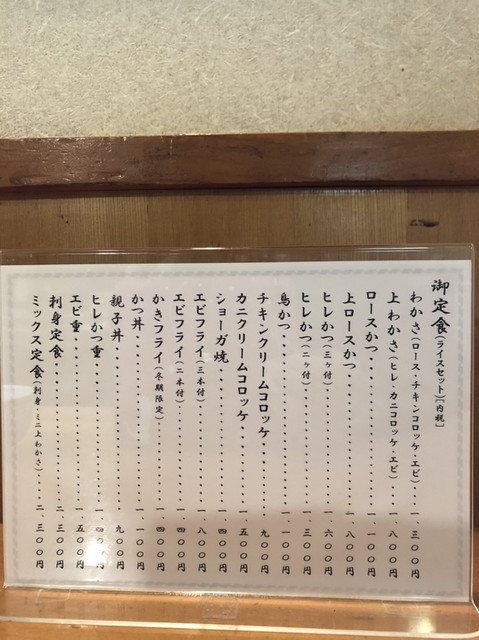 御定食(ライスセット)[内税]
わかさ(ロース・チキンコロッケ・エビ)‥一、三〇〇円
上わかさ(ヒレ・カニコロッケ・エビ)‥一、八〇〇円
ロースかつ‥‥‥‥一、一〇〇円
上ロースかつ‥‥‥‥一、八〇〇円
ヒレかつ(三ヶ付)‥‥‥‥一、六〇〇円
ヒレかつ(二ヶ付)‥‥‥‥一、三〇〇円
鳥かつ‥‥‥‥一、一〇〇円
チキンクリームコロッケ‥‥‥‥九〇〇円
カニクリームコロッケ‥‥‥‥一、五〇〇円
ショーガ焼‥‥‥‥一、四〇〇円
エビフライ(三本付)‥‥‥‥一、八〇〇円
エビフライ(二本付)‥‥‥‥一、四〇〇円
かきフライ(冬期限定)‥‥‥‥一、四〇〇円
かつ丼‥‥‥‥一、一〇〇円
親子丼‥‥‥‥九〇〇円
ヒレかつ重‥‥‥‥一、四〇〇円
エビ重‥‥‥‥一、五〇〇円
刺身定食‥‥‥‥二、三〇〇円
ミックス定食(刺身・ミニ上わかさ)‥‥二、三〇〇円